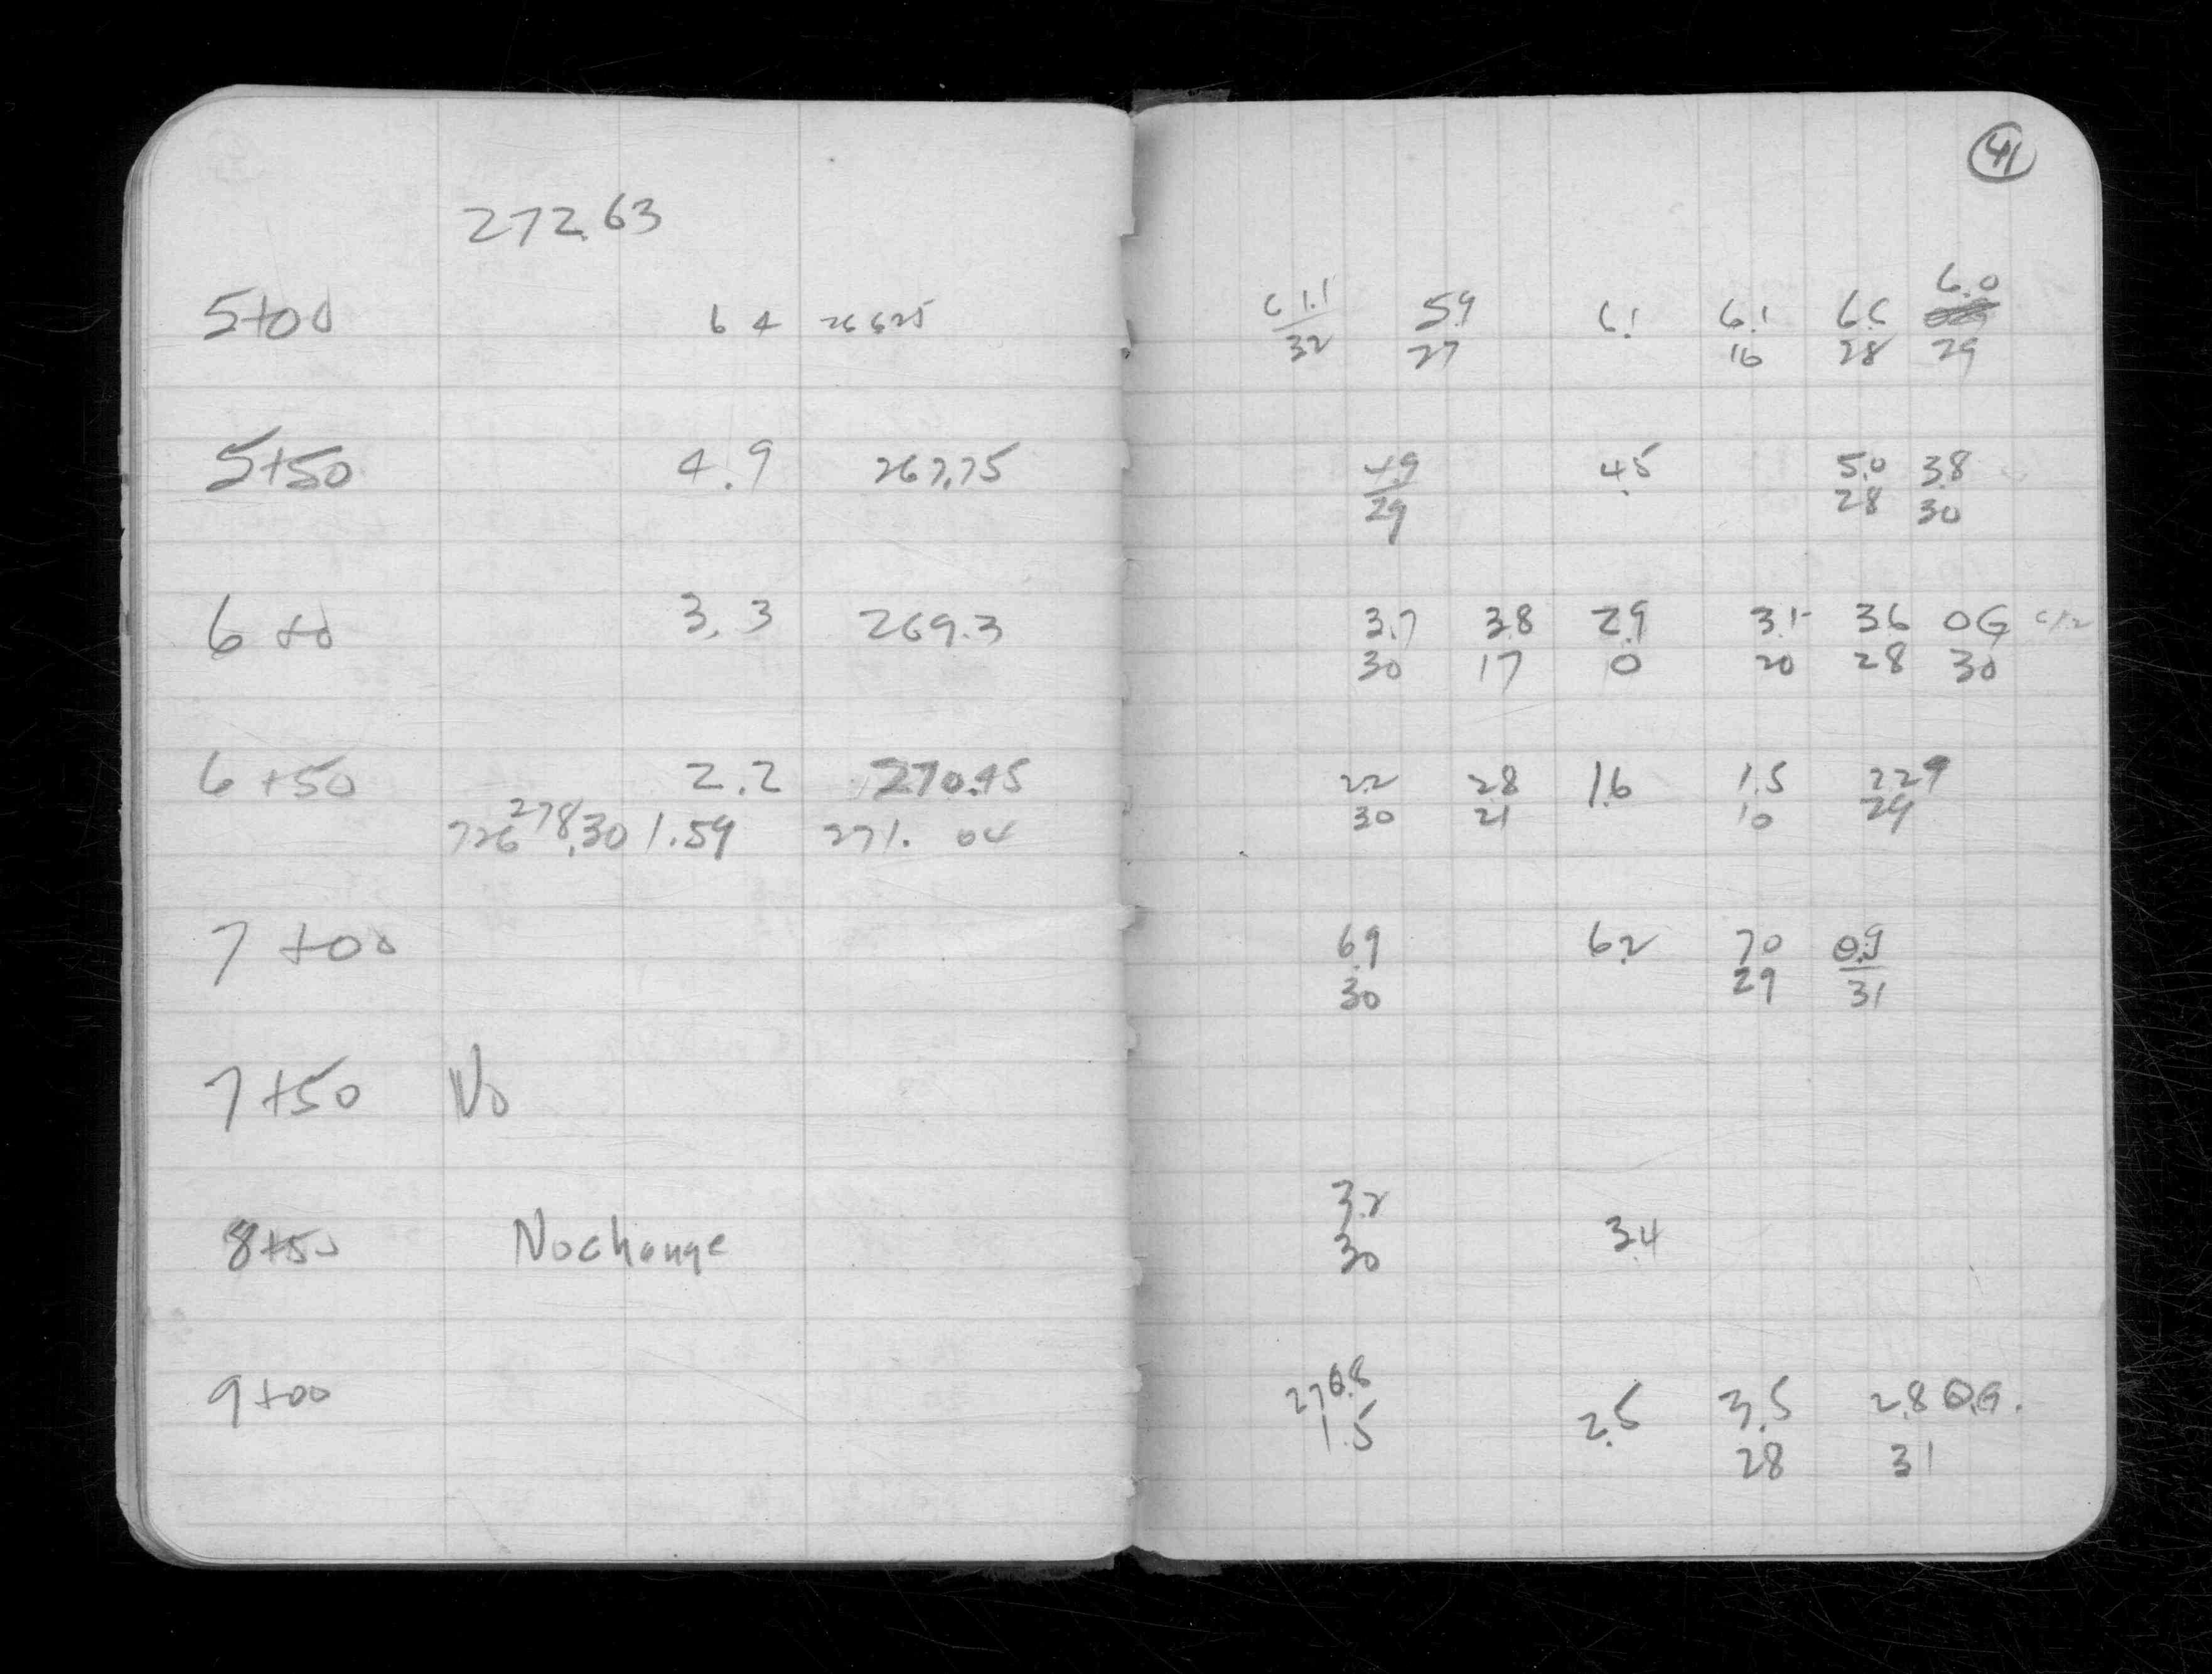 41
272.63
5+00 6 4 266.25
5+50 4.9 267.75
6+00 3.3 269.3
6+50 2.2 270.45
726 278.30 1.59 271.04
7+00
7+50 No
8+50 No change
9+00
5.9 6.1 6.1 6.0
32 27 16 28 29
4.9 4.5 5.0 3.8
29 28 30
3.7 3.8 2.9 3.1 3.6 OG
30 17 0 20 28 30
2.2 2.8 1.6 1.5
30 21 10 29
6.9 6.2 7.0
30 29 31
3.2
30 3.4
270.8
1.5 2.5 3.5 2.8 O.G.
28 31